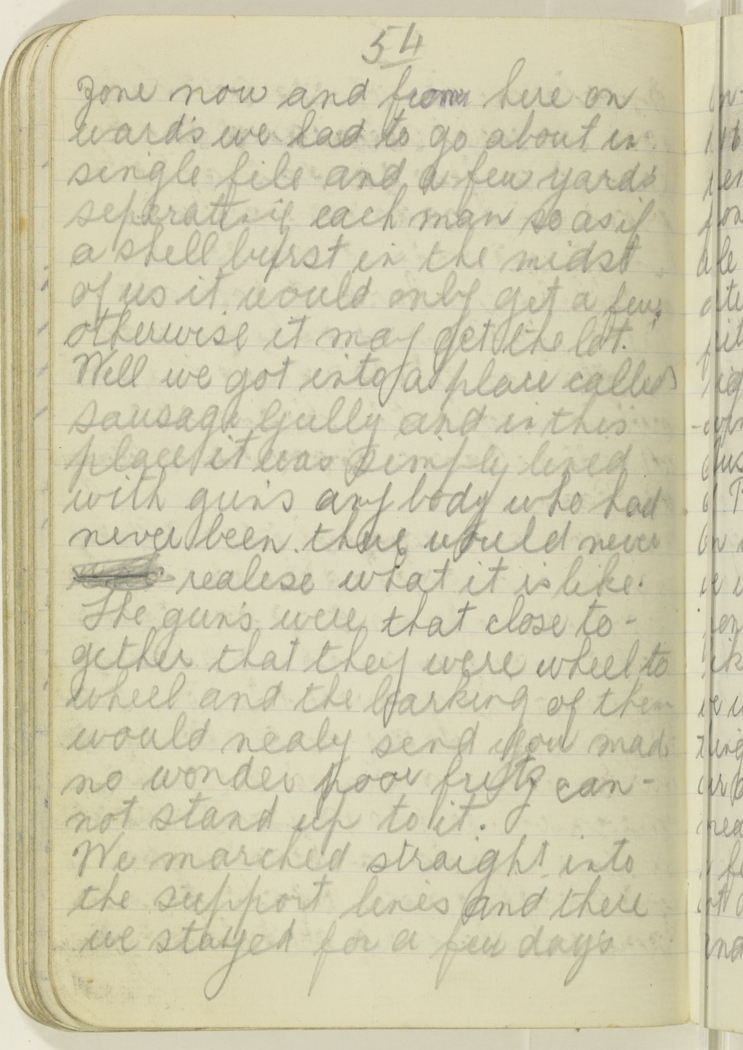 54
zone now and from here on
wards we had to go about in
single file and a few yards
seperating each man so as if
a shell burst in the midst
of us it would only get a few
otherwise it may get the lot.
Well we got into a place called
Sausage Gully and in this
place it was simply lined
with guns any body who had
never been there would never
realise what it is like.
The guns were that close to-
gether that they were wheel to
wheel and the barking of them
would nealy send you mad
no wonder poor fritz can-
not stand up to it.
We marched straight into
the support lines and there
we stayed for a few days